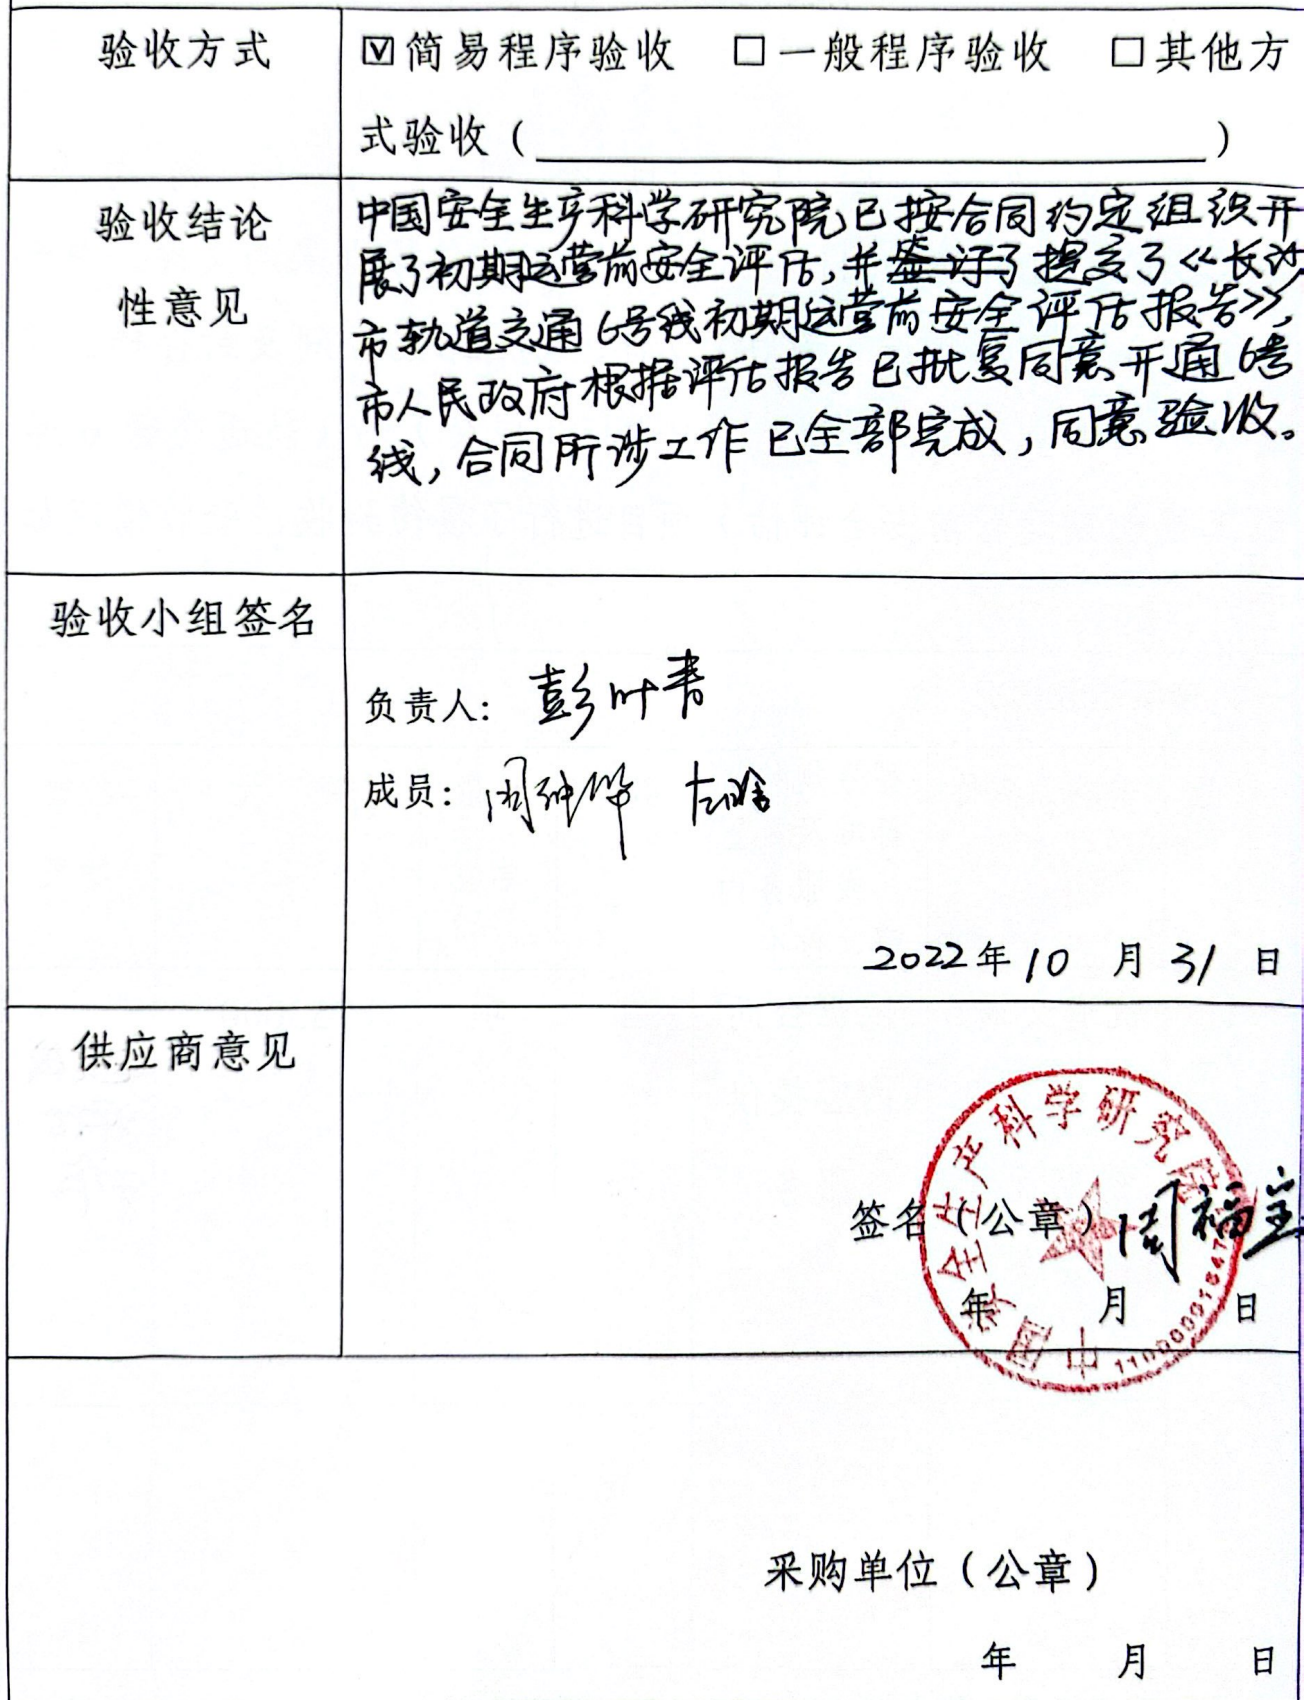 验收方式
☑简易程序验收 □一般程序验收 □其他方
式验收（                ）
验收结论
性意见
中国安全生产科学研究院已按合同约定组织开
展了初期运营前安全评估,并签订了提交了《长沙
市轨道交通6号线初期运营前安全评估报告》,
市人民政府根据评估报告已批复同意开通6号
线,合同所涉工作已全部完成,同意验收。
验收小组签名
负责人: 彭叶青
成员: 周
2022年10月31日
供应商意见
中国安全生产科学研究院
签名（公章）周福宝
年 月 日
采购单位（公章）
年 月 日